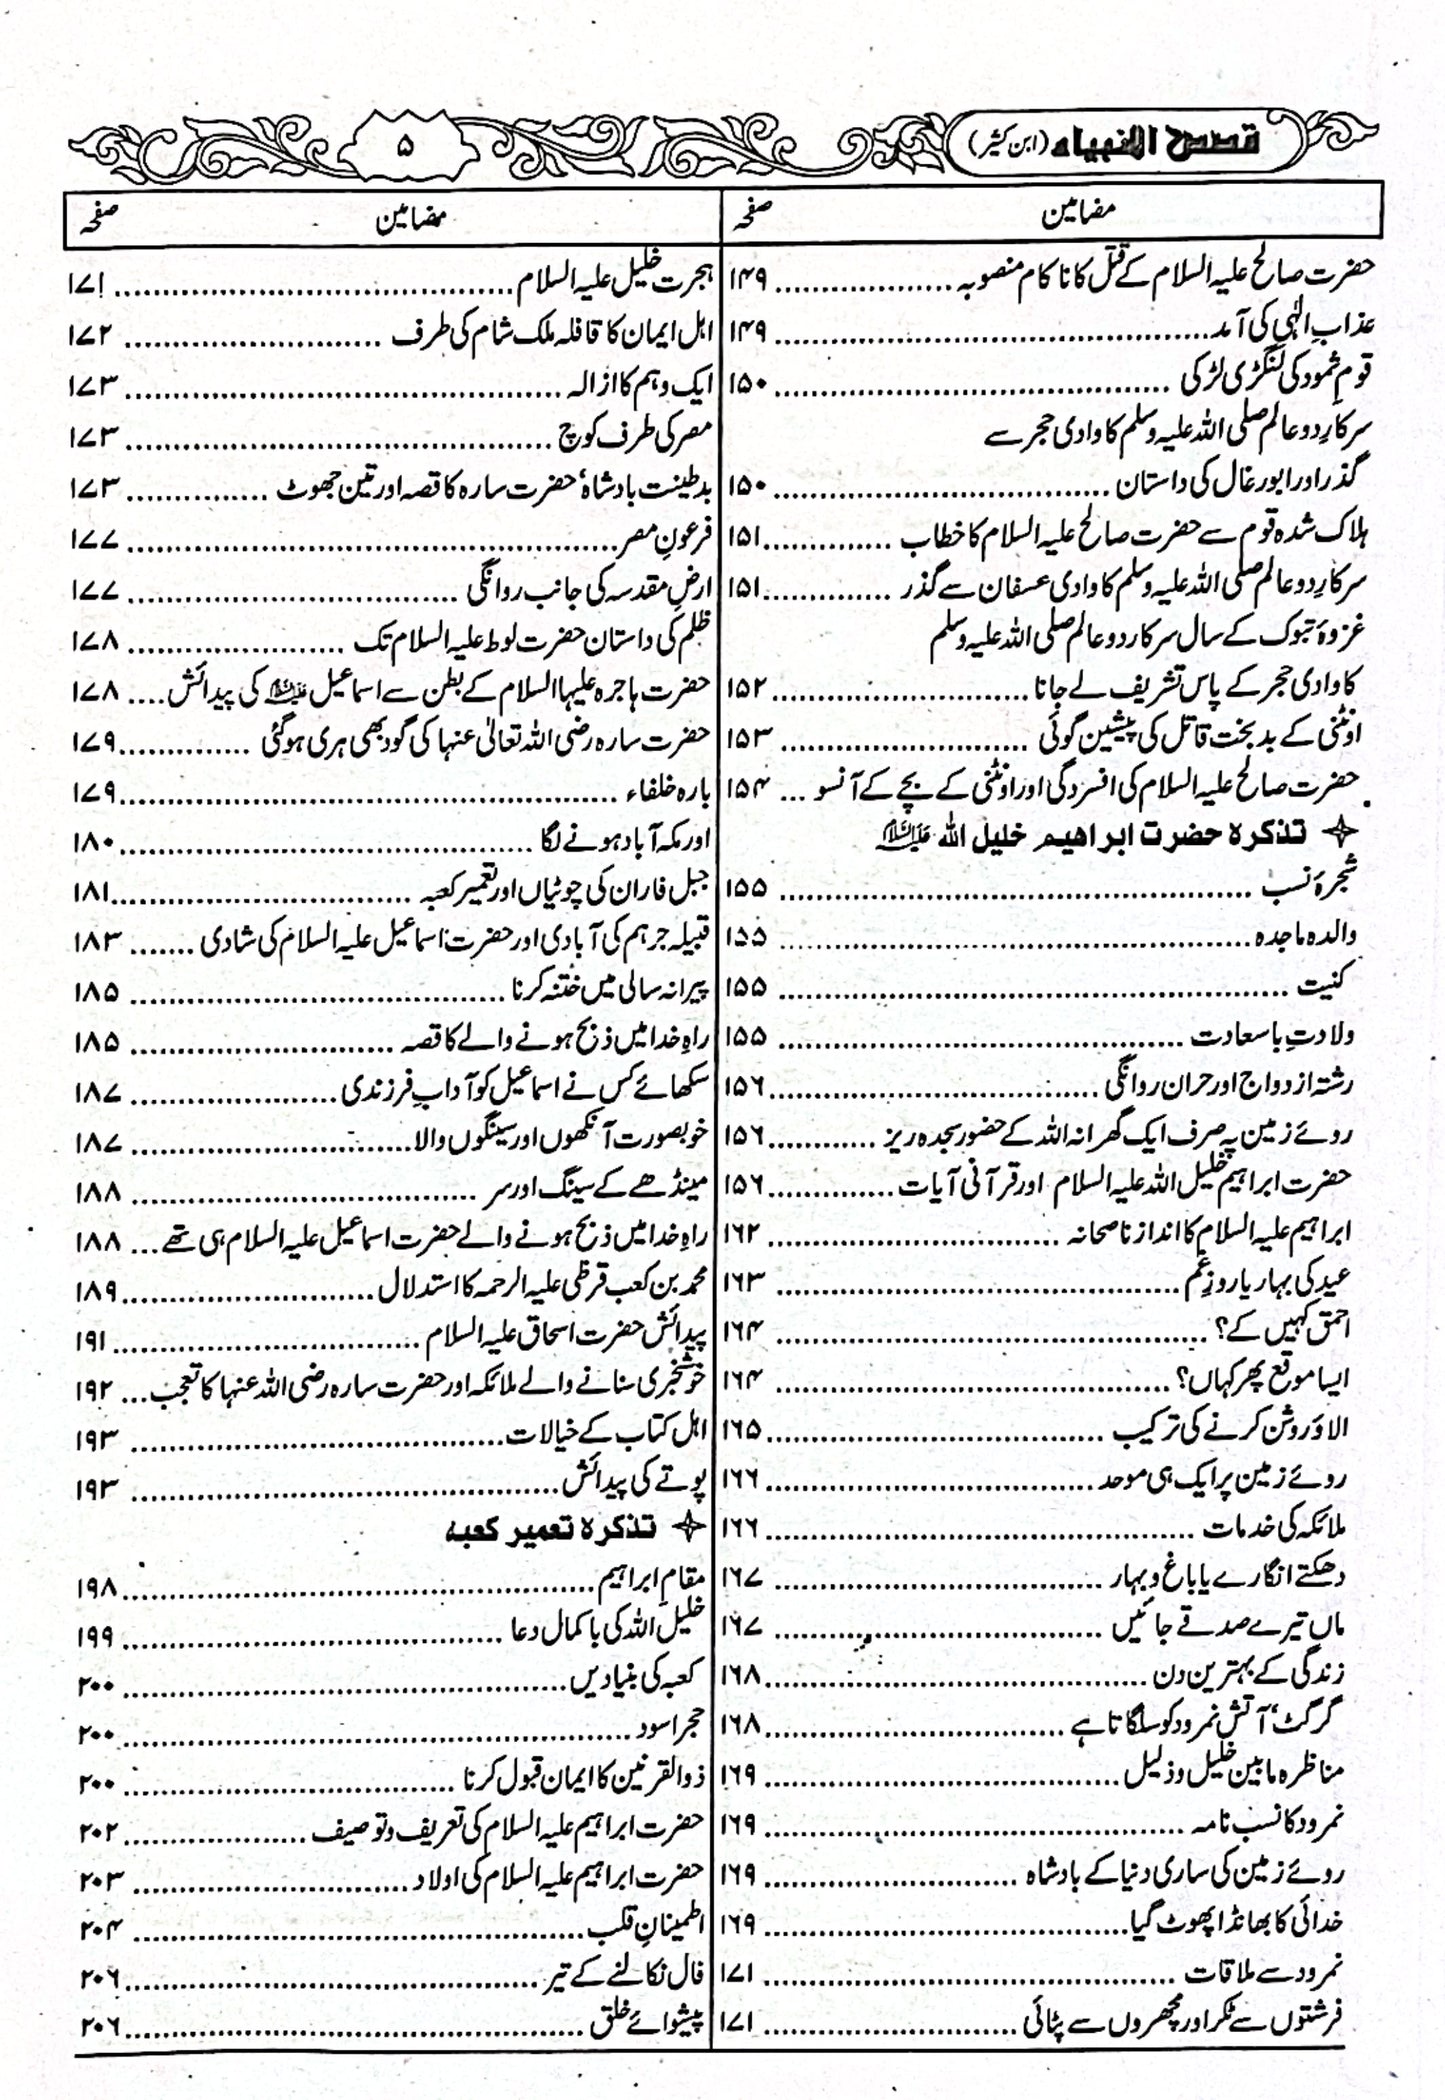 قصص الانبیاء (ابن کثیر)
۵
مضامین صفحہ
حضرت صالح علیہ السلام کے قتل کا ناکام منصوبہ ................... ۱۴۹
عذابِ الٰہی کی آمد ................... ۱۴۹
قومِ ثمود کی لنگڑی لڑکی ................... ۱۵۰
سرکارِ دو عالم صلی اللہ علیہ وسلم کا وادی حجر سے
گذر اور ابو رغال کی داستان ................... ۱۵۰
ہلاک شدہ قوم سے حضرت صالح علیہ السلام کا خطاب ................... ۱۵۱
سرکارِ دو عالم صلی اللہ علیہ وسلم کا وادی عسفان سے گذر ................... ۱۵۱
غزوۂ تبوک کے سال سرکار دو عالم صلی اللہ علیہ وسلم
کا وادی حجر کے پاس تشریف لے جانا ................... ۱۵۲
اونٹنی کے بد بخت قاتل کی پیشین گوئی ................... ۱۵۳
حضرت صالح علیہ السلام کی افسردگی اور اونٹنی کے بچے کے آنسو ... ۱۵۴
تذکرہ حضرت ابراھیم خلیل اللہ علیہ السلام
شجرۂ نسب ................... ۱۵۵
والدہ ماجدہ ................... ۱۵۵
کنیت ................... ۱۵۵
ولادتِ باسعادت ................... ۱۵۵
رشتہ ازدواج اور حران روانگی ................... ۱۵۶
روئے زمین پہ صرف ایک گھرانہ اللہ کے حضور سجدہ ریز ................... ۱۵۶
حضرت ابراہیم خلیل اللہ علیہ السلام اور قرآنی آیات ................... ۱۵۶
ابراہیم علیہ السلام کا انداز ناصحانہ ................... ۱۶۲
عید کی بہار یا روزِ غم ................... ۱۶۳
احمق کہیں کے؟ ................... ۱۶۴
ایسا موقع پھر کہاں؟ ................... ۱۶۴
الاؤ روشن کرنے کی ترکیب ................... ۱۶۵
روئے زمین پر ایک ہی موحد ................... ۱۶۶
ملائکہ کی خدمات ................... ۱۶۶
دھکتے انگارے یا باغ و بہار ................... ۱۶۷
ماں تیرے صدقے جائیں ................... ۱۶۷
زندگی کے بہترین دن ................... ۱۶۸
گرگٹ' آتش نمرود کو سلگاتا ہے ................... ۱۶۸
مناظرہ مابین خلیل و ذلیل ................... ۱۶۹
نمرود کا نسب نامہ ................... ۱۶۹
روئے زمین کی ساری دنیا کے بادشاہ ................... ۱۶۹
خدائی کا بھانڈا پھوٹ گیا ................... ۱۶۹
نمرود سے ملاقات ................... ۱۷۱
فرشتوں سے ٹکر اور مچھروں سے پٹائی ................... ۱۷۱
مضامین صفحہ
ہجرت خلیل علیہ السلام ................... ۱۷۱
اہل ایمان کا قافلہ ملک شام کی طرف ................... ۱۷۲
ایک وہم کا ازالہ ................... ۱۷۳
مصر کی طرف کوچ ................... ۱۷۳
بدطینت بادشاہ' حضرت سارہ کا قصہ اور تین جھوٹ ................... ۱۷۳
فرعونِ مصر ................... ۱۷۷
ارضِ مقدسہ کی جانب روانگی ................... ۱۷۷
ظلم کی داستان حضرت لوط علیہ السلام تک ................... ۱۷۸
حضرت ہاجرہ علیہا السلام کے بطن سے اسماعیل علیہ السلام کی پیدائش .... ۱۷۸
حضرت سارہ رضی اللہ تعالیٰ عنہا کی گود بھی ہری ہوگئی ................... ۱۷۹
بارہ خلفاء ................... ۱۷۹
اور مکہ آباد ہونے لگا ................... ۱۸۰
جبل فاران کی چوٹیاں اور تعمیر کعبہ ................... ۱۸۱
قبیلہ جرہم کی آبادی اور حضرت اسماعیل علیہ السلام کی شادی ....... ۱۸۳
پیرانہ سالی میں ختنہ کرنا ................... ۱۸۵
راہِ خدا میں ذبح ہونے والے کا قصہ ................... ۱۸۵
سکھائے کس نے اسماعیل کو آدابِ فرزندی ................... ۱۸۷
خوبصورت آنکھوں اور سینگوں والا ................... ۱۸۷
مینڈھے کے سینگ اور سر ................... ۱۸۸
راہِ خدا میں ذبح ہونے والے حضرت اسماعیل علیہ السلام ہی تھے ... ۱۸۸
محمد بن کعب قرظی علیہ الرحمہ کا استدلال ................... ۱۸۹
پیدائش حضرت اسحاق علیہ السلام ................... ۱۹۱
خوشخبری سنانے والے ملائکہ اور حضرت سارہ رضی اللہ عنہا کا تعجب ... ۱۹۲
اہل کتاب کے خیالات ................... ۱۹۳
پوتے کی پیدائش ................... ۱۹۳
تذکرہ تعمیر کعبہ
مقامِ ابراہیم ................... ۱۹۸
خلیل اللہ کی باکمال دعا ................... ۱۹۹
کعبہ کی بنیادیں ................... ۲۰۰
حجر اسود ................... ۲۰۰
ذوالقرنین کا ایمان قبول کرنا ................... ۲۰۰
حضرت ابراہیم علیہ السلام کی تعریف و توصیف ................... ۲۰۲
حضرت ابراہیم علیہ السلام کی اولاد ................... ۲۰۳
اطمینانِ قلب ................... ۲۰۴
فال نکالنے کے تیر ................... ۲۰۶
پیشوائے خلق ................... ۲۰۶